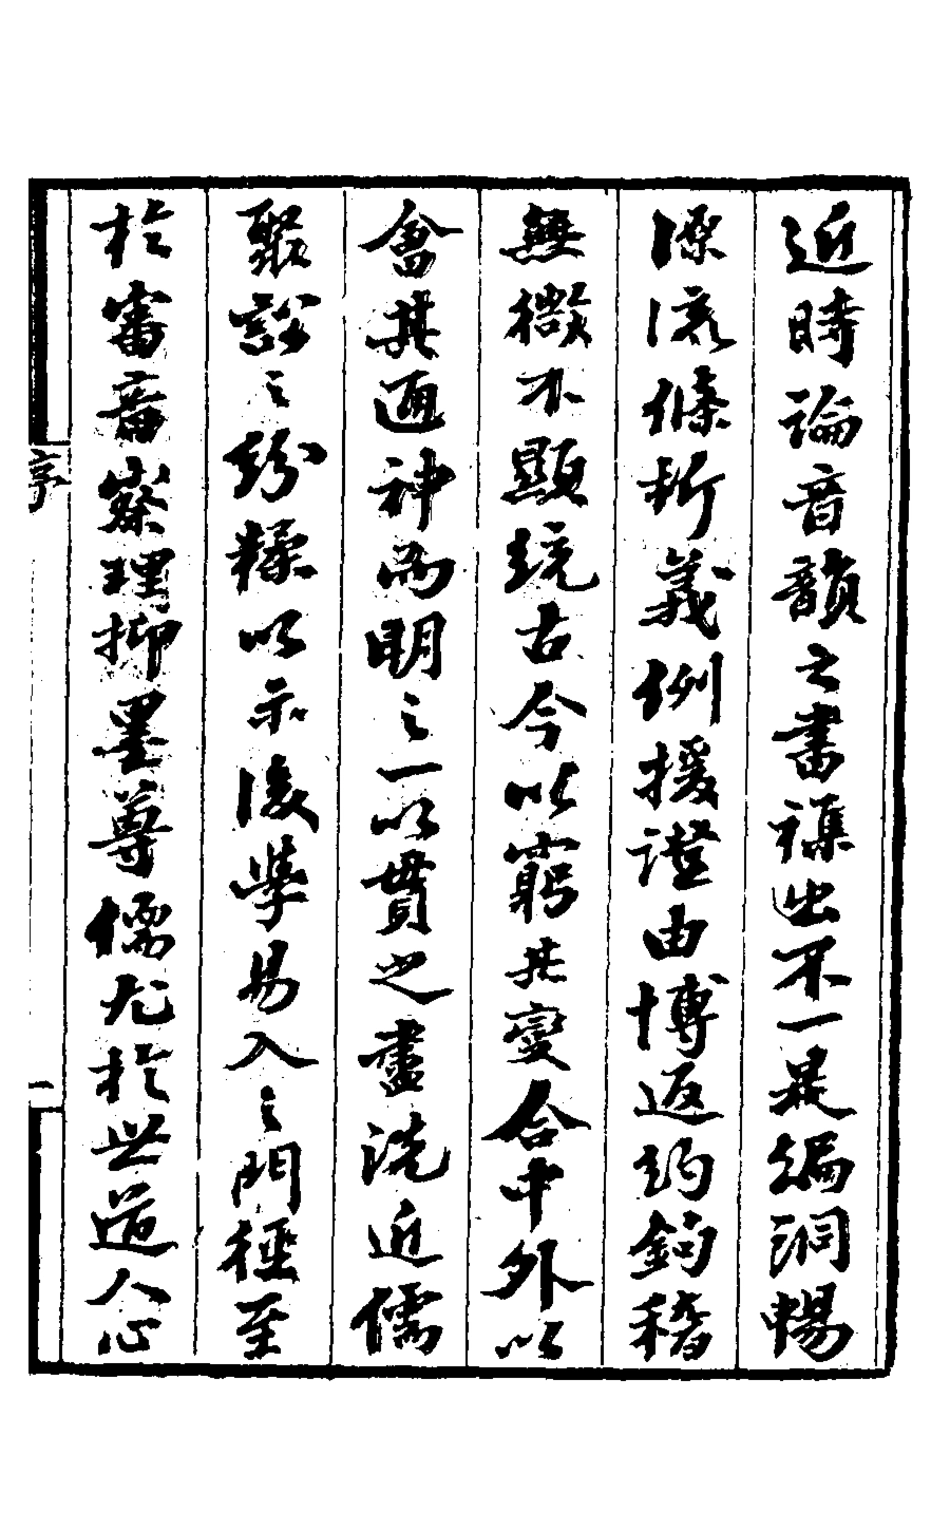 近時論音韻之書襍出不一是編洞暢
源流條析義例援證由博返約鉤稽
無微不顯統古今以窮其變合中外以
會其通神而明之一以貫之盡洗近儒
聚訟之紛糅以示後學易入之門徑至
於審音察理抑墨尊儒尤於世道人心
序
一